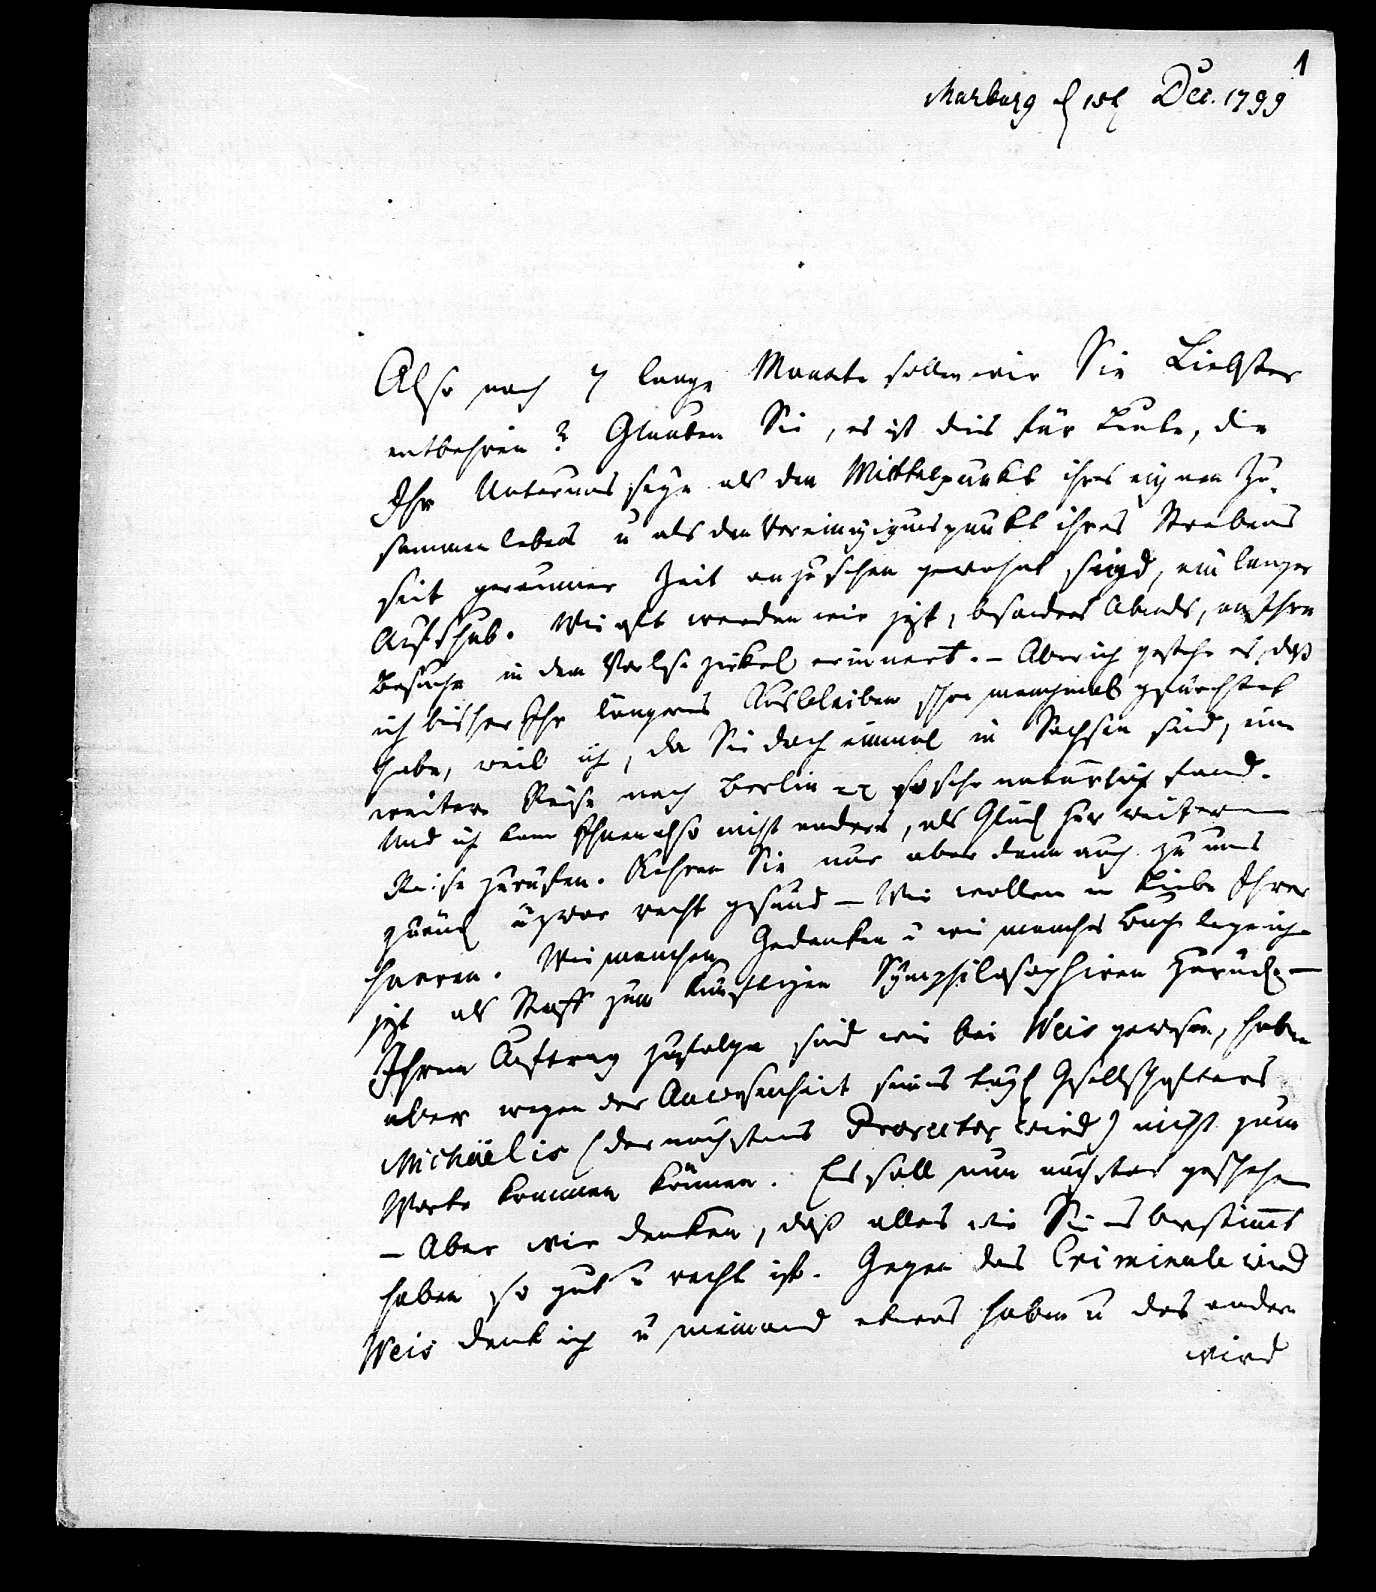 1
Marburg d 18t Dec. 1799
Also noch 7 lange Monate sollen wir Sie Liebster
entbehren? Glauben Sie, es ist dies für Leute, die
Ihr Unternns seyn als den Mittelpunkt ihres eignen Zu-
sammenlebens u als den Vereinigigungspunkt ihres Strebens
seit geraumer Zeit anzusehen gewohnt sind, ein langer
Aufschub. Wie oft werden wir jezt, besonders Abends, an Ihre
Besuche in dem Vorlese zirkel erinnert. – Aber ich gestehe es, daß
ich bisher Ihr längeres Ausbleiben schon manchmal gefürchtet
habe, weil ich, da Sie doch einmal in Sachsen sind, eine
weitere Reise nach Berlin so sehr natürlich fand.
Und ich kann Ihnen also nicht anders, als Glück zur weitern
Reise zurufen. Kehren Sie nur aber dann auch zu uns
zurück u zwar recht gesund – Wir wollen in Liebe Ihrer
harren. Wie manchen Gedanken u wie manches Buch lege ich
jezt als Stoff zum künftigen Symphilosophiren zurück. –
Ihrem Auftrag zufolge sind wir bei Weis gewesen, haben
aber wegen der Anwesenheit seines tägl Gesellschafters
Michaëlis (der nächstens Prorector wird) nicht zum
Worte kommen können. Es soll nun nächstens geschehen
– Aber wir denken, daß alles wie Sie es bestimmt
haben so gut u recht ist. Gegen das Criminale wird
Weis denk ich u niemand etwas haben u das andere
wird